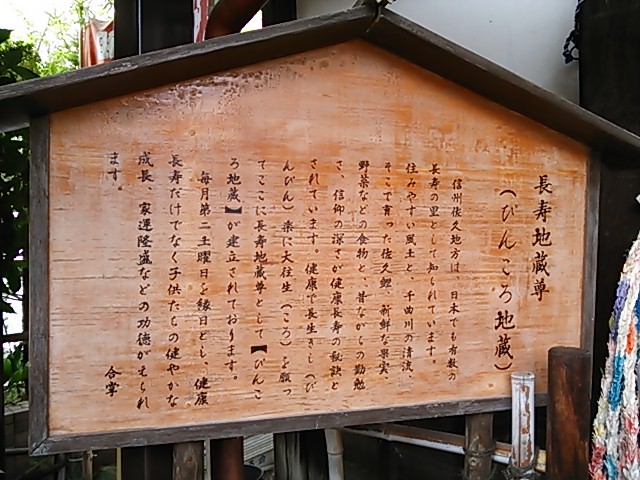 長寿地蔵尊
(ぴんころ地蔵)
信州佐久地方は、日本でも有数の
長寿の里として知られています。
住みやすい風土と、千曲川の清流、
そこで育った佐久鯉、新鮮な果実、
野菜などの食物と、昔ながらの勤勉
さ、信仰の深さが健康長寿の秘訣と
されています。健康で長生きし(ぴ
んぴん)楽に大往生(ころ)を願っ
てここに長寿地蔵尊として【ぴんこ
ろ地蔵】が建立されております。
毎月第二土曜日を縁日とし、健康
長寿だけでなく子供たちの健やかな
成長、家運隆盛などの功徳がそられ
ます。
合掌